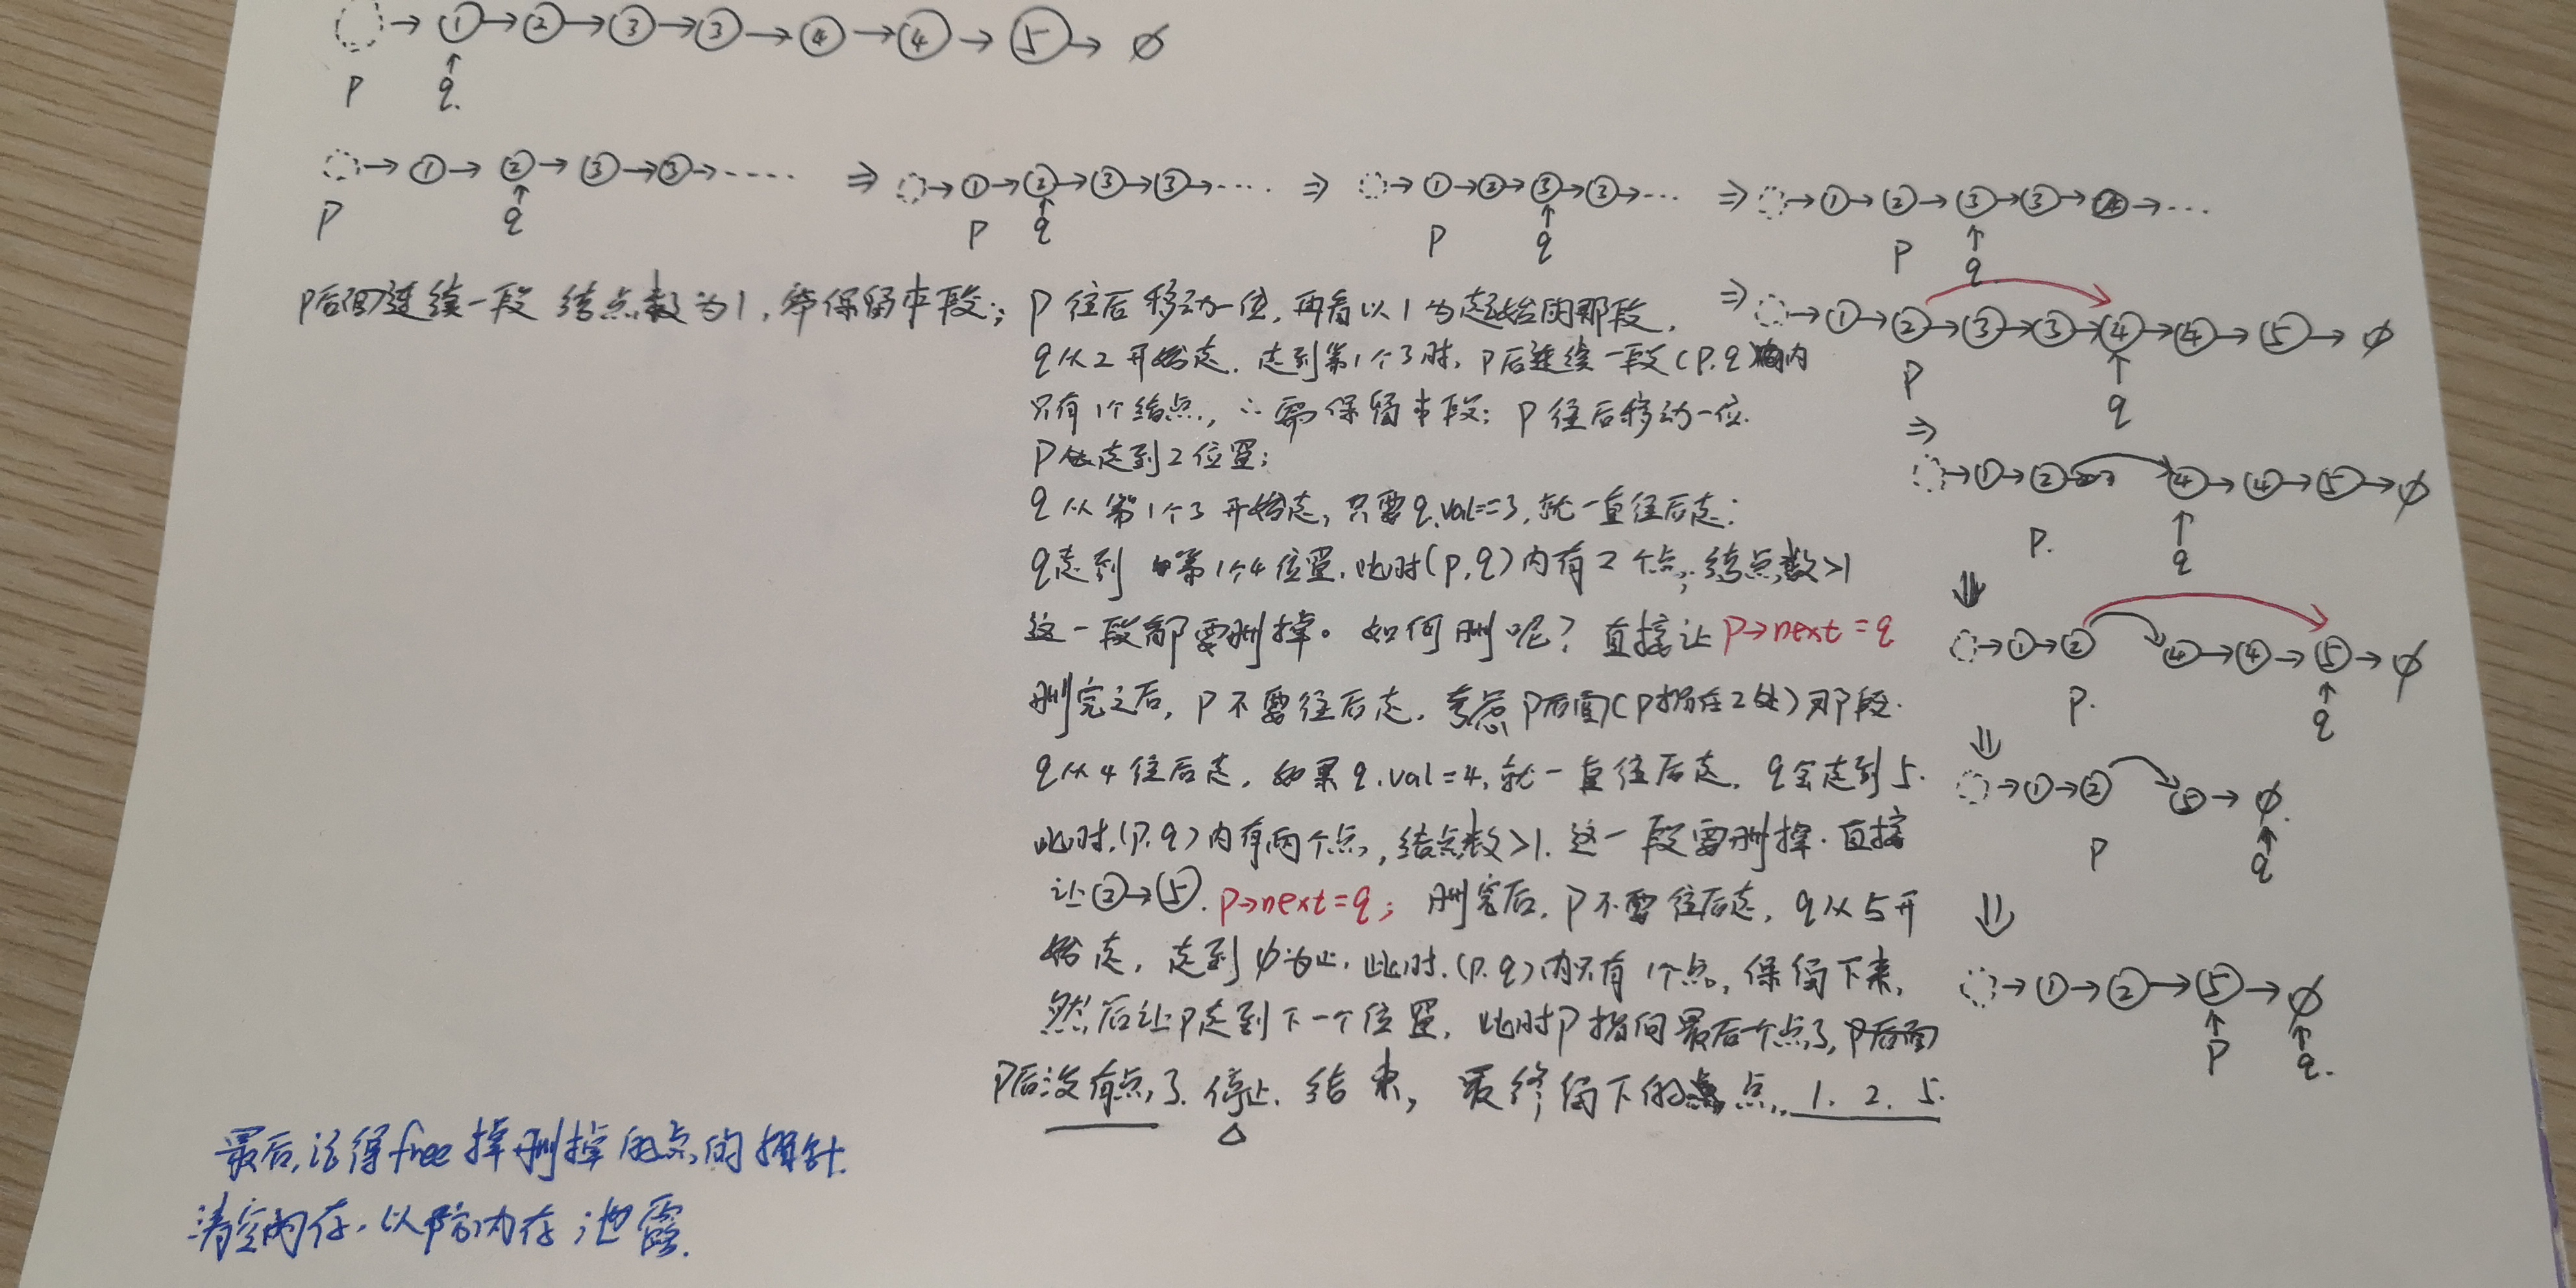 → 1 → 2 → 3 → 3 → 4 → 4 → 5 → ∅
P q.
→ 1 → 2 → 3 → 3 → ..... ⇒ → 1 → 2 → 3 → 3 → .... ⇒ → 1 → 2 → 3 → 3 → ... ⇒ → 1 → 2 → 3 → 3 → 4 → ...
P q P q P q P q
P后面连续一段 结点数为1,需保留本段;
P 往后移动一位,再看以1为起始的那段.
q从2开始走.走到第1个3时,P后连续一段(P.q)内
只有1个结点,∴需保留本段;P往后移动一位.
P走到2位置;
q从第1个3开始走,只要q.val==3,就一直往后走;
q走到第1个4位置.此时(P.q)内有2个点,结点数>1
这一段都要删掉。如何删呢?直接让P→next=q
删完之后,P不要往后走.考虑P后面(P指在2处)那段.
q从4往后走.如果q.val=4,就一直往后走.q会走到5.
此时.(P.q)内有两个点,结点数>1.这一段要删掉.直接
让②→⑤.P→next=q;删完后,P不要往后走,q从5开
始走,走到∅为止.此时.(P.q)内只有1个点,保留下来,
然后让P走到下一个位置.此时P指向最后个点了,P后面
P后没有点了.停止.结束,最终留下的点.1.2.5.
⇒ → 1 → 2 → 3 → 3 → 4 → 4 → 5 → ∅
P q
⇒
→ 1 → 2 4 → 4 → 5 → ∅
P. q
⇓
→ 1 → 2 4 → 4 → 5 → ∅
P. q
⇓
→ 1 → 2 5 → ∅.
P q
⇓
→ 1 → 2 → 5 → ∅
P q.
最后,记得free掉删掉的点的指针.
清空内存.以防内存泄露.